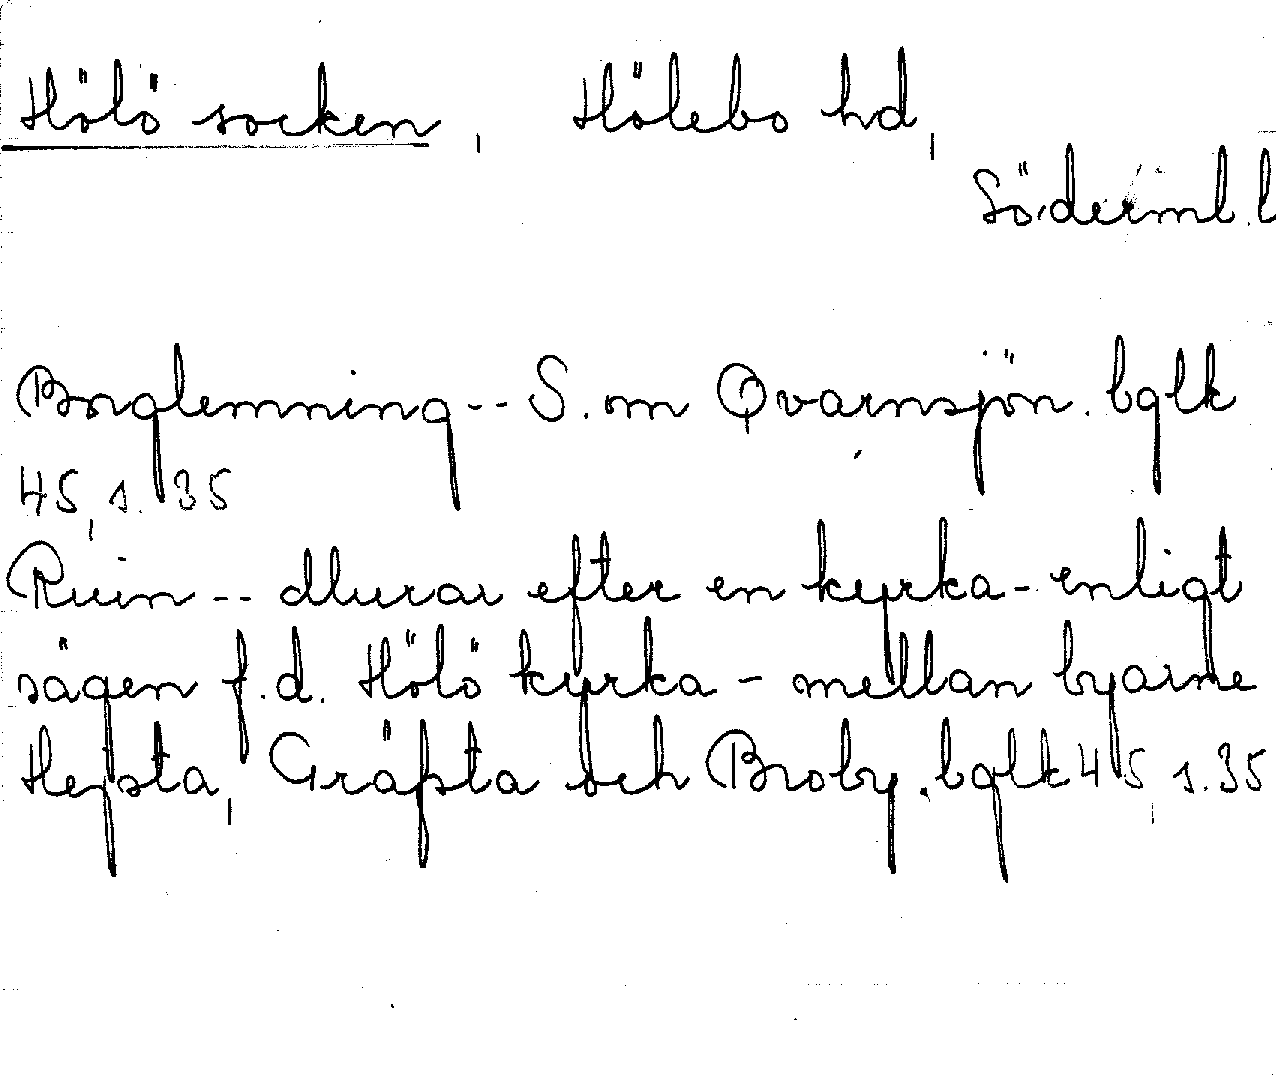 Hölö socken, Hölebo hd,
Söderml. l
Borglemning -- S. om Qvarnsjön. bglk
45, s. 35
Ruin -- murar efter en kyrka - enligt
sägen f.d. Hölö kyrka - mellan byarne
Hefsta, Gräfsta och Broby. bglk 45, s. 35